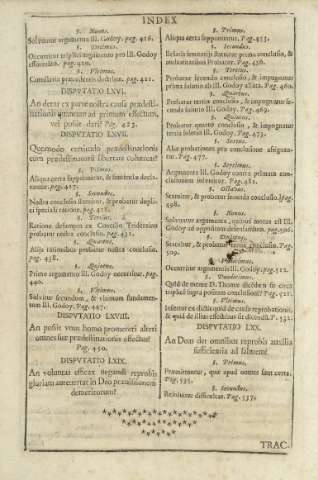 INDEX
§. Nonus.
Solvuntur argumenta Ill. Godoy. pag. 416.
§. Decimus.
Occurritur triplici argumento pro Ill. Godoy
pag. 420.
§. Vltimus.
Corollaria præcedentis doctrinæ. pag. 421.
DISPVTATIO LXVI.
An detur ex parte nostra causa prædesti-
nationis quantum ad primum effectum,
vel possit dari? Pag. 423.
DISPVTATIO LXVII.
Quomodo certitudo prædestinationis
cum prædestinatorum libertate cohæreat?
§. Primus.
Aliqua certa supponuntur, & sententiæ decla-
rantur. pag. 427.
§. Secundus.
Nostra conclusio statuitur, & probatur dupli-
ci pag. 428.
§. Tertius.
Ratione desumpta ex Concilio Tridentino
probatur nostra conclusio. pag. 431.
§. Quartus.
Alijs rationibus probatur nostra conclusio.
pag. 438.
§. Quintus.
Primo argumento Ill. Godoy occurritur. pag.
440.
§. Vltimus.
Solvitur secundum, & vltimum fundamen-
tum Ill. Godoy. Pag. 447.
DISPVTATIO LXVIII.
An possit vnus homo promereri alteri
omnes suæ prædestinationis effectus?
Pag. 450.
DISPVTATIO LXIX.
An voluntas efficax negandi reprobis
gloriam antecedat in Deo præuisionem
demeritorum?
§. Primus.
Aliqua certa supponuntur. Pag. 453.
§. Secundus.
Relatis sententijs statuitur prima conclusio, &
authoritatibus Probatur. Pag. 456.
§. Tertius.
Probatur secunda conclusio, & impugnatur
prima solutio ab Ill. Godoy allata. Pag. 460.
§. Quartus.
Probatur tertia conclusio, & impugnatur se-
cunda solutio Ill. Godoy. Pag. 469.
§. Quintus.
Probatur quarta conclusio, & impugnatur
tertia solutio Ill. Godoy. Pag. 473.
§. Sextus.
Aliæ probationes pro conclusione assignan-
tur. Pag. 477.
§. Septimus.
Argumenta Ill. Godoy contra primam con-
clusionem Pag. 481.
§. Octauus.
Statuitur, & probatur secunda conclusio. Pag.
498.
§. Nonus.
Solvuntur argumenta, quibus Ill.
Godoy ad oppositum pag. 506.
Statuitur, & probatur tertia conclusio. Pag.
509.
Occurritur argumentis Ill. Godoy. pag. 512.
§. Duodecimus.
Quid de mente D. Thomæ dicendum sit circa
triplici supra positam conclusionem? Pag. 521.
§. Vltimus.
Infertur ex dictis quid de causa reprobationis,
& quid de illius effectibus sit dicendum. P. 532.
DISPVTATIO LXX.
An Deus det omnibus reprobis auxilia
sufficientia ad salutem?
§. Primus.
Præmittuntur, quæ apud omnes sunt certa.
Pag. 535.
§. Secundus.
Resolvitur difficultas. Pag. 537.
TRAC-